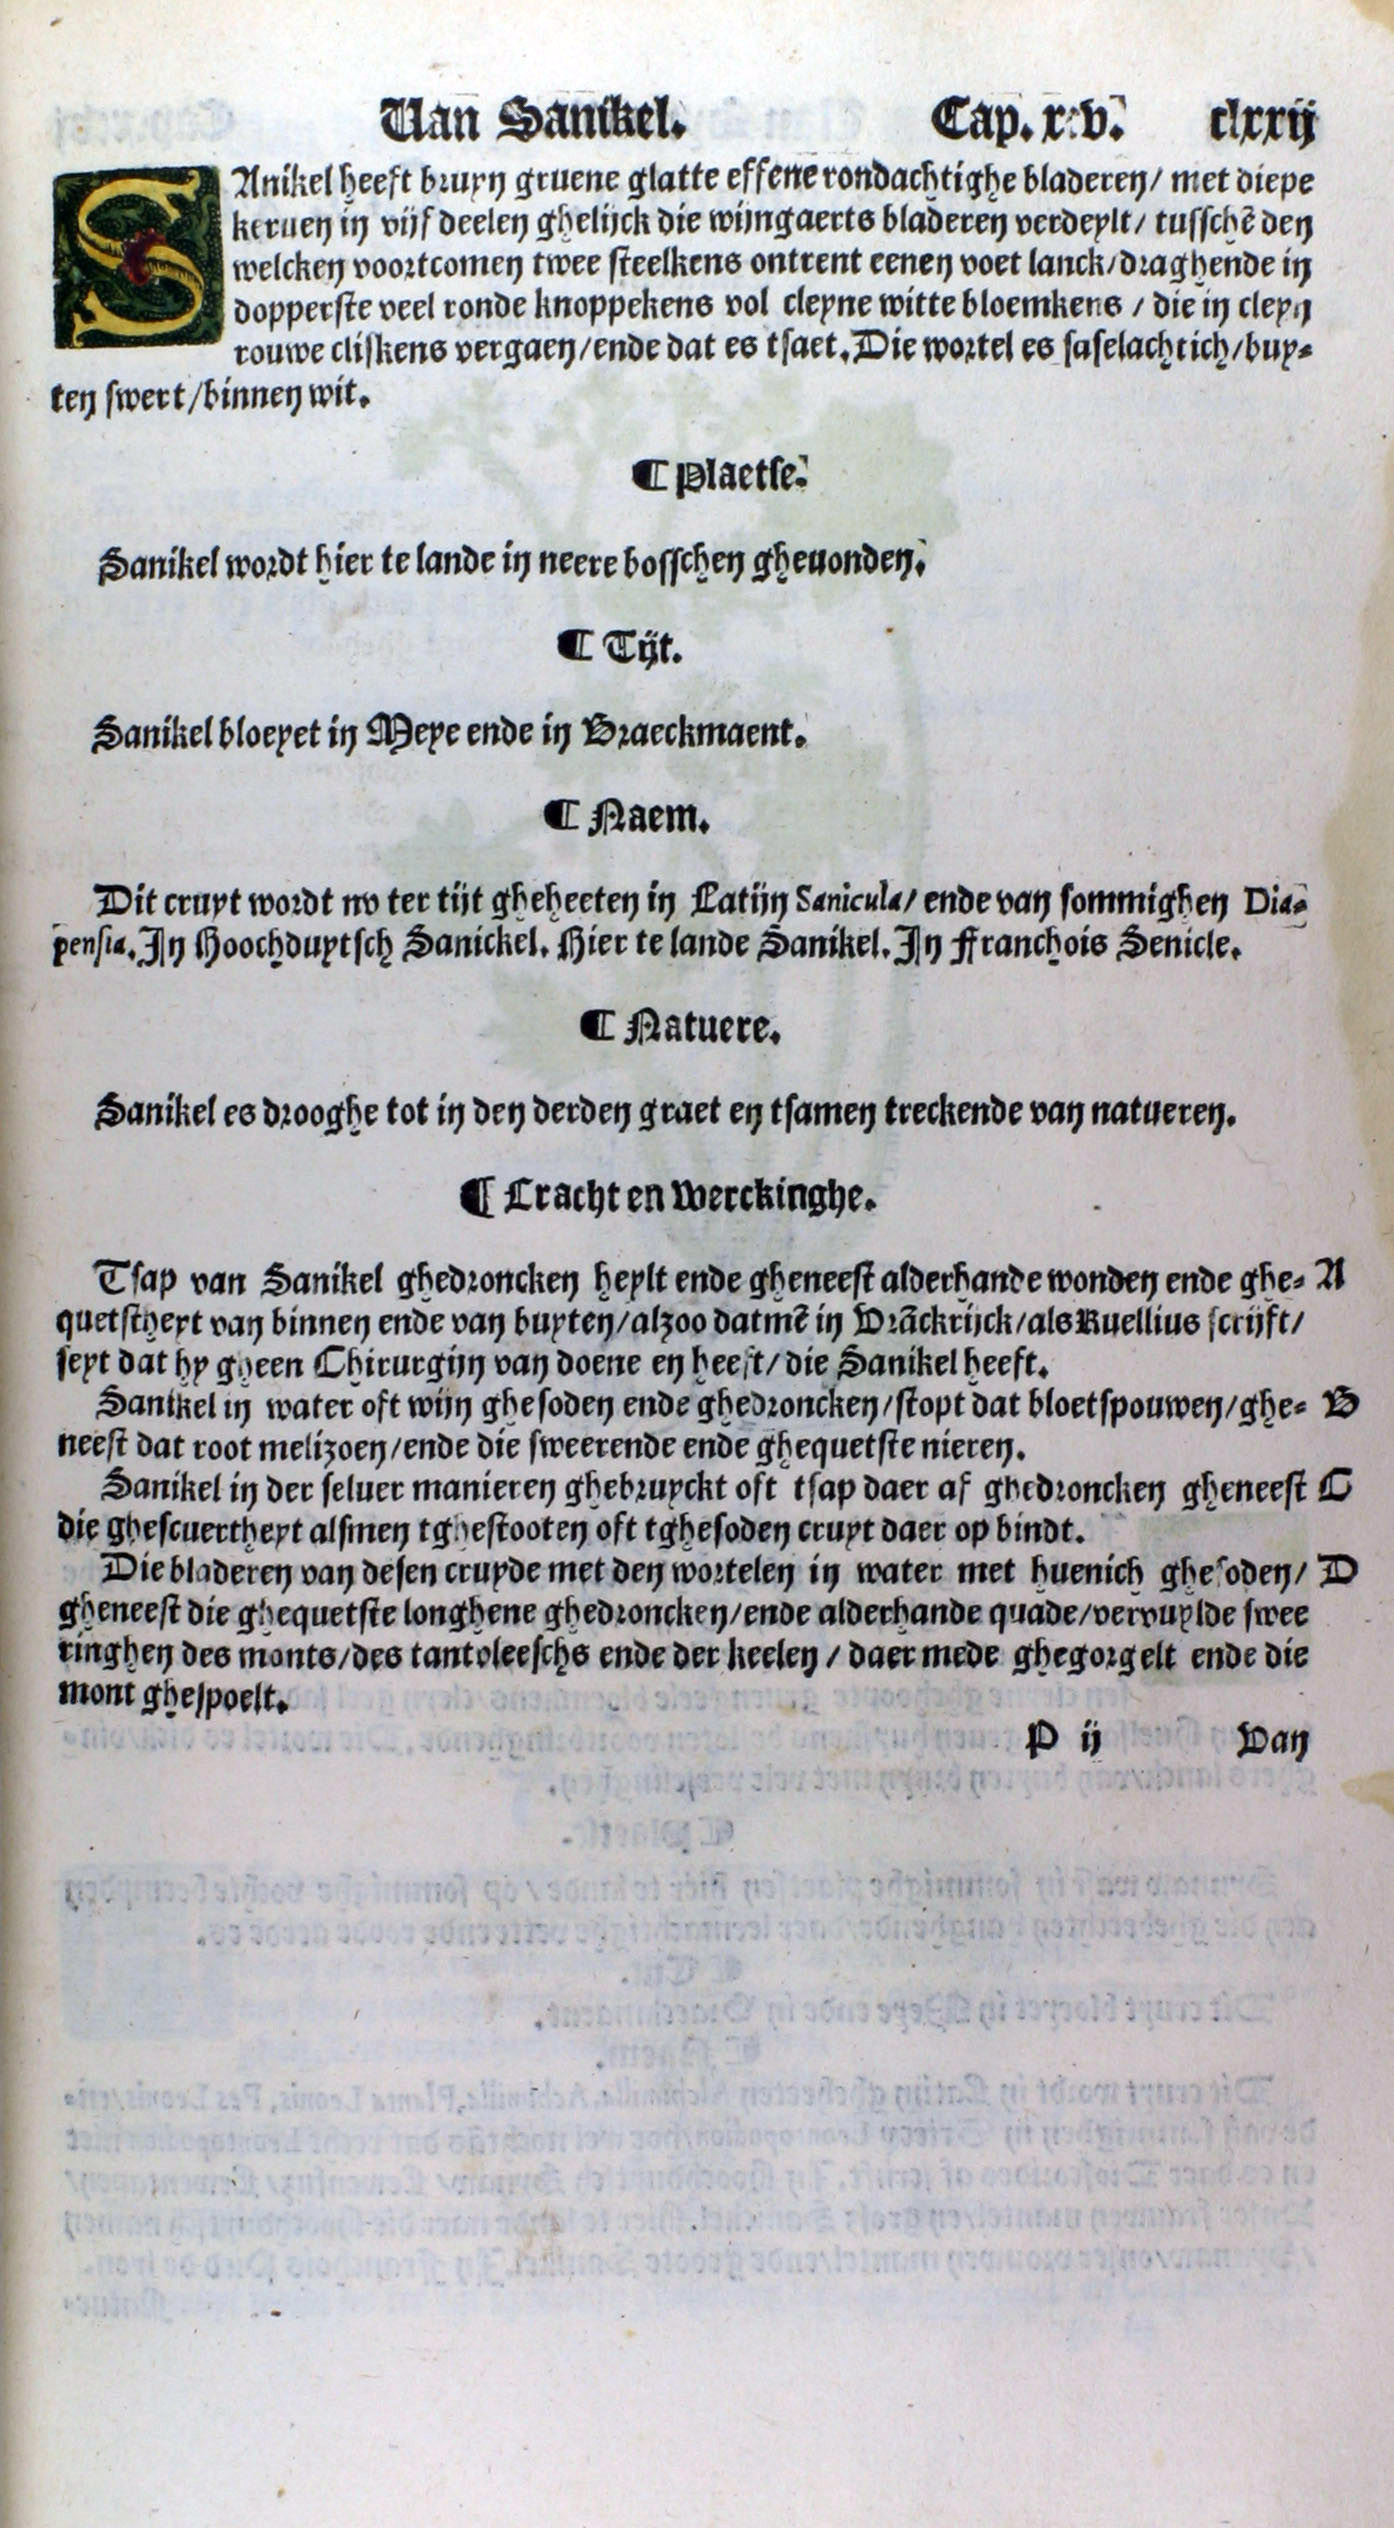 Van Sanikel. Cap. xcv. clxxij
SAnikel heeft bruyn gruene glatte effene rondachtighe bladeren/ met diepe
keruen in vijf deelen ghelijck die wijngaerts bladeren verdeylt/ tusschē den
welcken voortcomen twee steelkens ontrent eenen voet lanck/draghende in
dopperste veel ronde knoppekens vol cleyne witte bloemkens / die in cleyn
rouwe cliskens vergaen/ende dat es tsaet. Die wortel es faselachtich/buy-
ten swert/binnen wit.
¶ Plaetse.
Sanikel wordt hier te lande in neere bosschen gheuonden.
¶ Tijt.
Sanikel bloeyet in Meye ende in Braeckmaent.
¶ Naem.
Dit cruyt wordt nv ter tijt gheheeten in Latijn Sanicula/ ende van sommighen Dia-
pensia. In Hoochduytsch Sanickel. Hier te lande Sanikel. In Franchois Senicle.
¶ Natuere.
Sanikel es drooghe tot in den derden graet en tsamen treckende van natueren.
¶ Cracht en Werckinghe.
Tsap van Sanikel ghedroncken heylt ende gheneest alderhande wonden ende ghe- A
quetstheyt van binnen ende van buyten/alzoo datmē in Vrāckrijck/als Ruellius scrijft/
seyt dat hy gheen Chirurgijn van doene en heeft/ die Sanikel heeft.
Sanikel in water oft wijn ghesoden ende ghedroncken/stopt dat bloetspouwen/ghe- B
neest dat root melizoen/ende die sweerende ende ghequetste nieren.
Sanikel in der seluer manieren ghebruyckt oft tsap daer af ghedroncken gheneest C
die ghescuertheyt alsmen tghestooten oft tghesoden cruyt daer op bindt.
Die bladeren van desen cruyde met den wortelen in water met huenich ghesoden/ D
gheneest die ghequetste longhene ghedroncken/ende alderhande quade/vervuylde swee
ringhen des monts/des tantvleeschs ende der keelen / daer mede ghegorgelt ende die
mont ghespoelt.
P ij Van